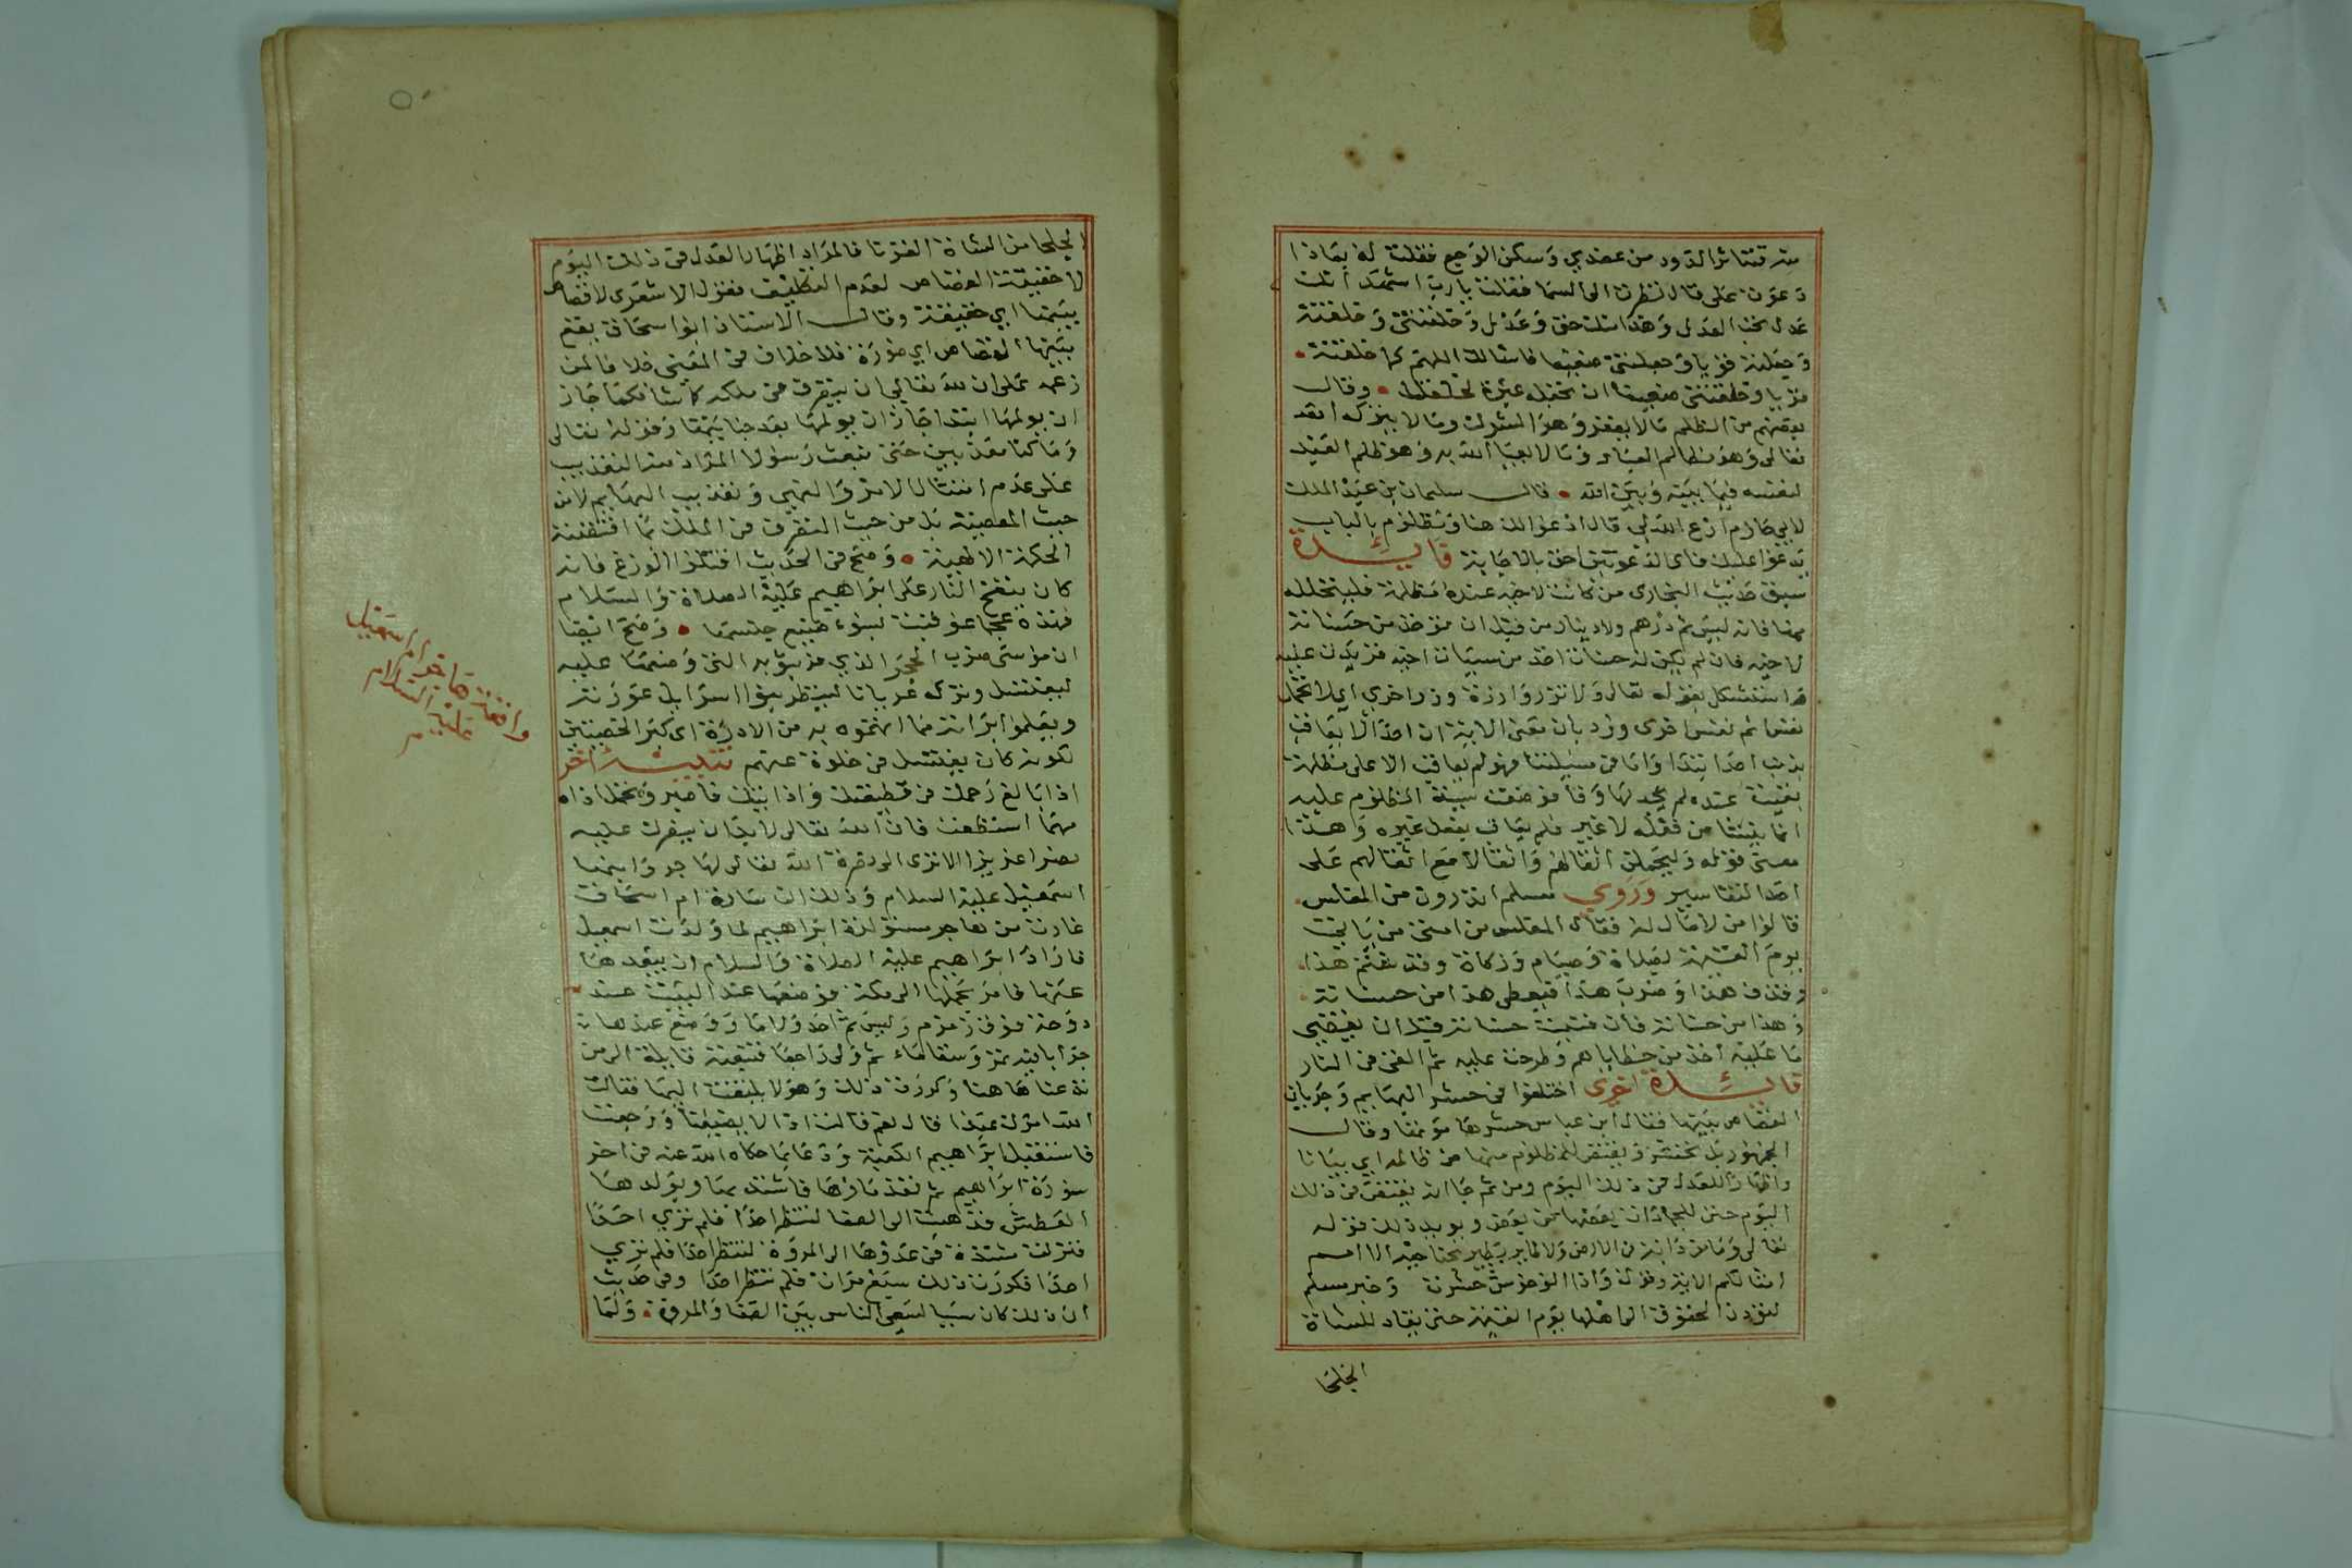 تتناثر الدود من عضدي وسكن الوجع فقلت له بماذا
دعوت علي قال نظرت الى السما فقلت يا رب اشهد انك
عدل تحب العدل وهذا منك حق وعدل وخلقتني وخلقته
وجعلته قويا وجعلتني ضعيفا فاسالك اللهم كما خلقته
قويا وخلقتني ضعيفا ان تجعله عبرة لخلقك وقال
بعضهم من الظلم ما لا يغفر وهو الشرك وما لا يترك الله
تعالى وهو مظالم العباد وما لا يعبا الله به وهو ظلم العبد
لنفسه فيما بينه وبين الله قال سليمان بن عبد الملك
لابي حازم ادع الله لي قال ادعوا لك هنا ومظلوم بالباب
يدعوا عليك فاى الدعوتين احق بالاجابة فايدة
سبق حديث البخارى من كانت لاخيه عنده مظلمة فليتحلله
منها فانه ليس ثم درهم ولا دينار من قبل ان يوخذ من حسناته
لاخيه فان لم يكن له حسنات اخذ من سيات اخيه فزيدت عليه
قد استشكل بقوله تعالى ولا تزر وازرة وزر اخرى اي لا تحمل
نفس اثم نفس اخرى ورد بان معنى الاية ان احدا لا يعاقب
بذنب احد ابتدا واما في مسيلتنا فهو لم يعاقب الا على مظلمة
بقيت عنده لم يجد لها وفا فوضعت سيئة المظلوم عليه
انما نشا من فعله لا غير فلم يعاقب بفعل غيره وهذا
معنى قوله وليحملن اثقالهم واثقالا مع اثقالهم على
احد التفاسير وروي مسلم اتدرون من المفلس
قالوا من لا مال له فقال المفلس من امتي من ياتي
يوم القيمة بصلاة وصيام وزكاة وقد شتم هذا
وقذف هذا وضرب هذا فيعطى هذا من حسناته
وهذا من حسناته فان فنيت حسناته قبل ان يقضي
ما عليه اخذ من خطاياهم وطرحت عليه ثم القى في النار
فايدة اخرى اختلفوا في حشر البهايم وجريان
القصاص بينها فقال ابن عباس حشرها موتها وقال
الجمهور بل تحشر ويقتص للمظلوم منها من ظالمه اي بيانا
واظهارا للعدل في ذلك اليوم ومن ثم جا انه يقتص في ذلك
اليوم حتى للجماد ان بعضها من بعض ويويد ذلك قوله
تعالى وما من دابة في الارض ولا طاير يطير بجناحيه الا امم
امثالكم الاية وقوله واذا الوحوش حشرت وخبر مسلم
لتؤدن الحقوق الى اهلها يوم القيمة حتى يقاد للشاة
الجلحا
الجلحا من الشاة القرنا فالمراد اظهار العدل في ذلك اليوم
لا حقيقة القصاص لعدم التكليف فقول الاشعرى لا قصاص
بينها اي حقيقة وقال الاستاذ ابو اسحاق يقع
بينها القصاص اي صورة فلا خلاف في المعنى خلافا لمن
زعمه على ان لله تعالى ان يتصرف في ملكه كما يشا فكما جاز
ان يولمها ابتدا جاز ان يولمها بعد جنايتها وقوله تعالى
وما كنا معذبين حتى نبعث رسولا المراد منه التعذيب
على عدم امتثال الامر والنهي وتعذيب البهايم لا من
حيث المعصية بل من حيث التصرف في الملك بما اقتضته
الحكمة الالهية وصح في الحديث اقتلوا الوزغ فانه
كان ينفخ النار على ابراهيم عليه الصلاة والسلام
فهذه عجما عوقبت لسوء صنيع جنسها وصح ايضا
ان موسى ضرب الحجر الذي فر بثوبه التي وضعها عليه
ليغتسل وتركه عريانا لينظر بنوا اسرايل عورته
ويعلموا براته مما اتهموه به من الادرة اى كبر الخصيتين
لكونه كان يغتسل في خلوة عنهم تنبيه اخر
اذا بالغ رحمك في قطيعتك واذا يتك فاصبر وتحمل اذاه
مهما استطعت فان الله تعالى لا بد ان ينصرك عليه
نصرا عزيزا الا ترى الى نصرة الله تعالى لهاجر وابنها
اسمعيل عليه السلام وذلك ان سارة ام اسحاق
غارت من هاجر سرية ابراهيم لما ولدت اسمعيل
فاراد ابراهيم عليه الصلاة والسلام ان يبعدها
عنها فامر بحملها الى مكة فوضعها عند البيت عند
دوحة فوق زمزم وليس ثم احد ولا ما ووضع عندها
جرابا فيه تمر وسقا ماء ثم ولى راجعا فتبعته قايلة الى من
تدعنا هاهنا وكررت ذلك وهو لا يلتفت اليها فقالت
الله امرك بهذا قال نعم قالت اذا لا يضيعنا ورجعت
فاستقبل ابراهيم الكعبة ودعا بما حكاه الله عنه في اخر
سورة ابراهيم ثم نفد ماوها فاشتد بها وبولدها
العطش فذهبت الى الصفا لتنظر احدا فلم تري احدا
فنزلت مشتدة في عدوها الى المروة لتنظر احدا فلم تري
احدا فكررت ذلك سبع مرات فلم تنظر احدا وفي حديث
ان ذلك كان سببا لسعي الناس بين الصفا والمروة ولما
واقعة هاجر ام اسمعيل
عليهما السلام